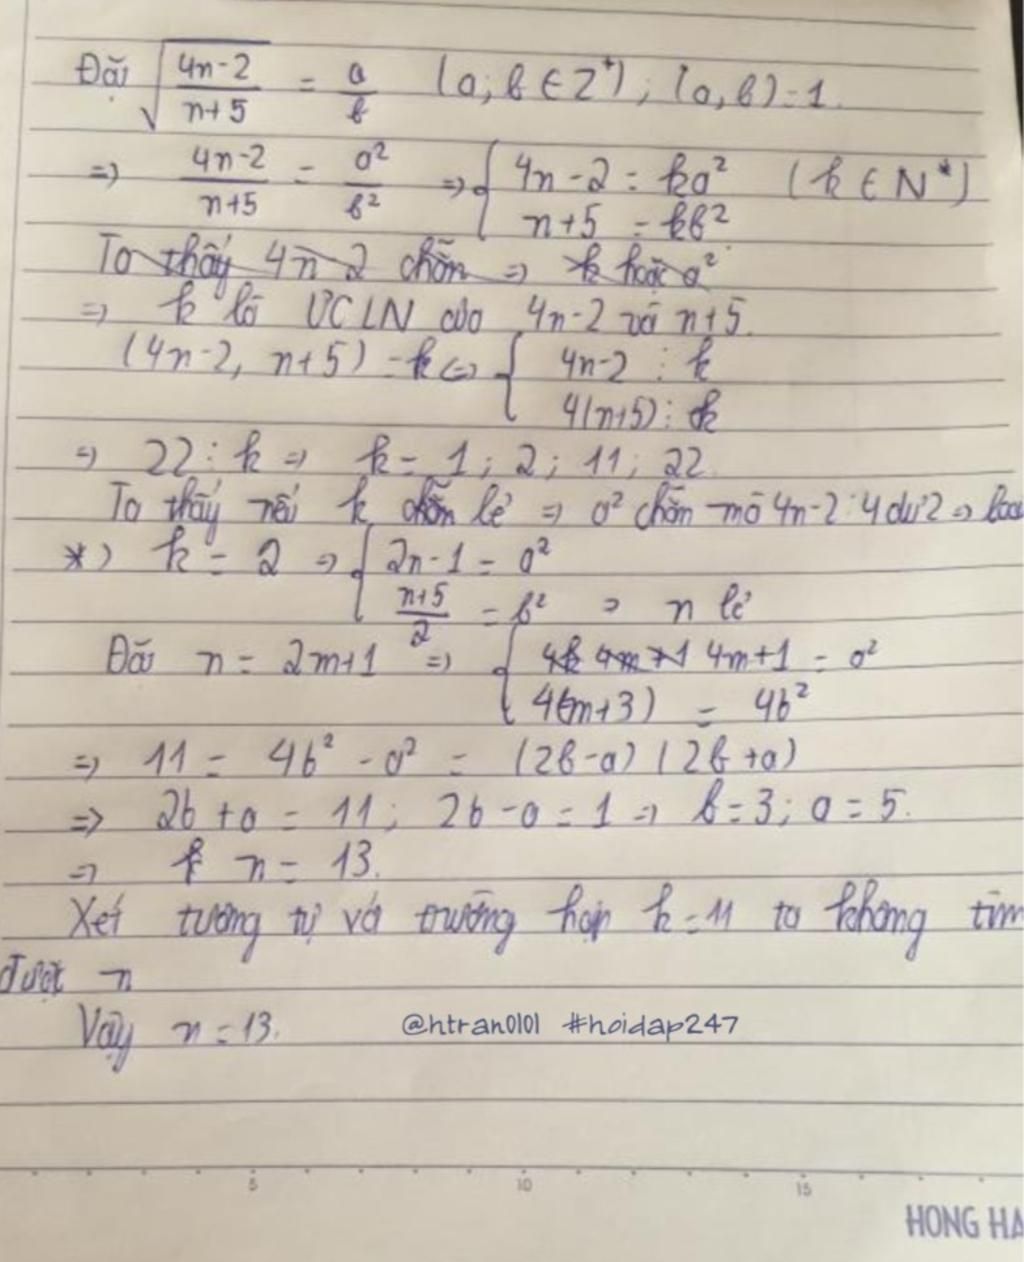 Đặt √(4n-2)/(n+5) = a/b (a; b ∈ Z⁺); (a, b) = 1.
=> (4n-2)/(n+5) = a²/b² => { 4n-2 = ka² (k ∈ N*)
n+5 = kb²
Ta thấy 4n-2 chẵn => k hoặc a²
=> k là ƯCLN của 4n-2 và n+5.
(4n-2, n+5) = k <=> { 4n-2 ⋮ k
4(n+5) ⋮ k
=> 22 ⋮ k => k = 1; 2; 11; 22
Ta thấy nếu k chẵn lẻ => a² chẵn mà 4n-2 : 4 dư 2 => loại
*) k = 2 => { 2n-1 = a²
(n+5)/2 = b² => n lẻ
Đặt n = 2m+1 => { 4k 4m+1 4m+1 = a²
4(m+3) = 4b²
=> 11 = 4b² - a² = (2b-a)(2b+a)
=> 2b+a = 11; 2b-a = 1 => b=3; a=5.
=> n = 13.
Xét tương tự với trường hợp k=11 ta không tìm
được n
Vậy n=13.
@htran0101 #hoidap247
5 10 15
HONG HA